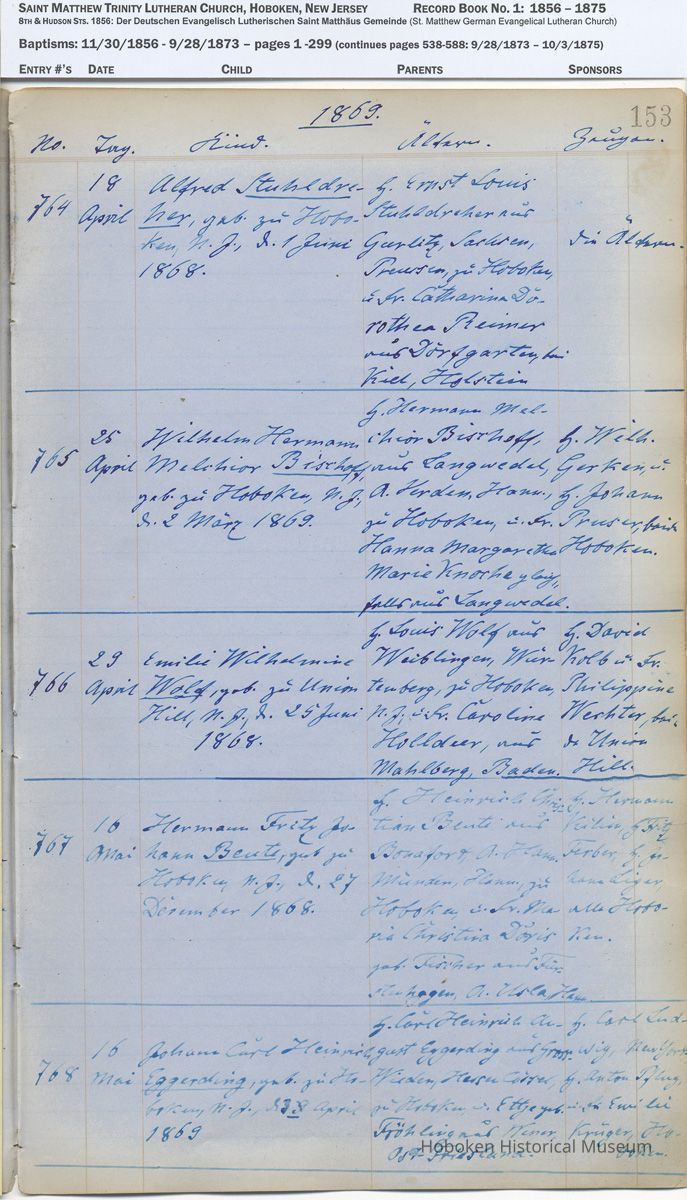 SAINT MATTHEW TRINITY LUTHERAN CHURCH, HOBOKEN, NEW JERSEY RECORD BOOK NO. 1: 1856 – 1875
8TH & HUDSON STS. 1856: Der Deutschen Evangelisch Lutherischen Saint Matthäus Gemeinde (St. Matthew German Evangelical Lutheran Church)
Baptisms: 11/30/1856 - 9/28/1873 – pages 1 -299 (continues pages 538-588: 9/28/1873 – 10/3/1875)
ENTRY #'S DATE CHILD PARENTS SPONSORS
1869. 153
No. Tag. Kind. Ältern. Zeugen.
764
18
April
Alfred Stuhldre-
her, geb. zu Hobo-
ken, N. J., d. 1 Juni
1868.
H. Ernst Louis
Stuhldreher aus
Goerlitz, Sachsen,
Preussen, zu Hoboken,
u. Fr. Catharina Do-
rothea Reimer
aus Dörfgarten, bei
Kiel, Holstein
die Ältern.
765
25
April
Wilhelm Hermann
Melchior Bischoff,
geb. zu Hoboken, N. J.,
d. 2 März 1869.
H. Hermann Mel-
chior Bischoff,
aus Langwedel,
A. Verden, Hann.,
zu Hoboken, u. Fr.
Hanna Margaretha
Marie Knoche gleich-
falls aus Langwedel.
H. Wilh.
Gerken, u.
H. Johann
Pruser, beide
Hoboken.
766
29
April
Emilie Wilhelmine
Wolf, geb. zu Union
Hill, N. J., d. 25 Juni
1868.
H. Louis Wolf aus
Weiblingen, Wür-
temberg, zu Hoboken,
N. J., u. Fr. Caroline
Holldeer, aus
Mahlberg, Baden.
H. David
Kolb u. Fr.
Philippine
Wechter, bei-
de Union
Hill.
767
16
Mai
Hermann Fritz Jo-
hann Beute, geb. zu
Hoboken, N. J., d. 27
Dezember 1868.
H. Heinrich Chris-
tian Beute aus
Bonafort, A. Hann.
Münden, Hann., zu
Hoboken, u. Fr. Ma-
ria Christina Doris
geb. Fischer aus Für-
stenhagen, A. Uslar, Hann.
H. Hermann
H. Fritz
Ferber, H.
alle Hobo-
ken.
768
16
Mai
Johann Carl Heinrich
Eggerding, geb. zu Ho-
boken, N. J., d. April
1869
H. Carl Heinrich Au-
gust Eggerding aus Gross-
Wieden, Hessen Cassel,
zu Hoboken u. geb.
Fröhling aus
Ost-Friesland.
H. Carl Lud-
wig, New York,
H. Anton
u. Fr. Emilie
Krüger, Ho-
boken.
Hoboken Historical Museum